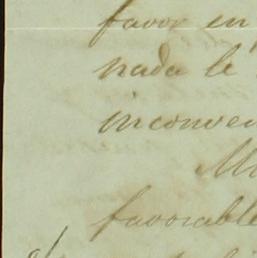 favor en
nada le
inconven
favorable